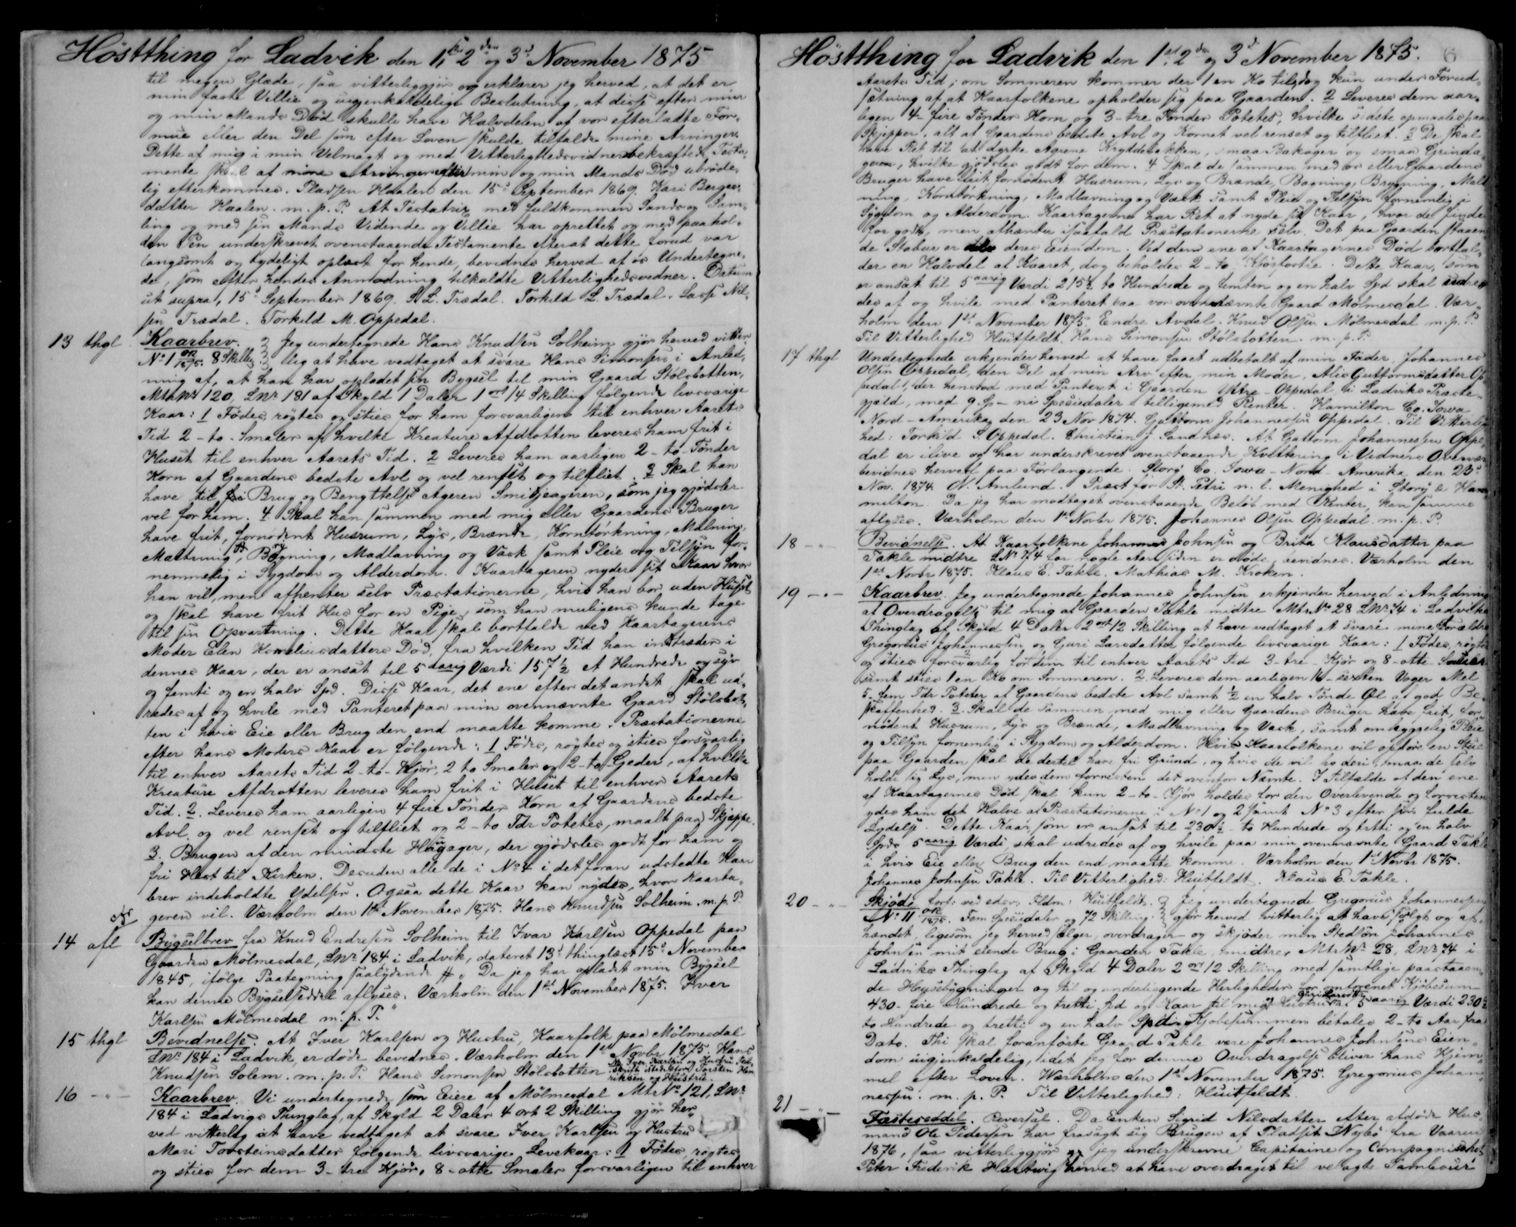 Høstthing for Ladvik den 1ste 2den og 3d November 1875
til megen Glæde, saa vitterliggjør og erklærer jeg herved, at det er
min faste Villie og uigjenkaldelige Beslutning, at disse efter min
og min Mands Død skulle have Halvdelen af vor efterladte For-
mue eller den Del som efter Loven skulde tilfalde mine Arvinger.
Dette af mig i min Velmagt og med Vitterlighedsvidner bekræftede Testa-
mente skal af mine Arvinger efter min og min Mands Død ubrøde-
lig efterkommes. Pladsen Haalen den 15d September 1869. Kari Berges-
datter Haalen. m. p. P. At Testatrix med fuldkommen Sands og Sam-
ling og med sin Mands Vidende og Villie har oprettet og med paahol-
den Pen underskrevet ovenstaaende Testamente efterat dette forud var
langsomt og tydeligt oplæst for hende, bevidnes herved af os Undertegne-
de, som efter hendes Anmodning tilkaldte Vitterlighedsvidner. Datum
ut supra, 15d September 1869. R. L. Trædal. Torkild L. Trædal. Lasse Nil-
sen Trædal. Torkild M. Oppedal.
13 thgl Kaarbrev. Jeg undertegnede Hans Knudsen Solheim gjør herved vitter-
No 1 8 Skilling lig at have vedtaget at svare Hans Simonsen i Anled-
ning af, at han har opladet sin Bygsel til min Gaard Stølsbotten,
Mtr No 120, LNr 181 af Skyld 1 Daler 1 ort 14 Skilling følgende livsvarige
Kaar: 1 Fødes røgtes og sties for ham forsvarligen til enhver Aarets
Tid 2 - to - Smaler af hvilke Kreature Afdrotten leveres ham frit i
Huset til enhver Aarets Tid. 2 Leveres ham aarligen 2 - to Tønder
Korn af Gaardens bedste Avl og vel renset og tilfliet. 3 Skal han
have til fri Brug og Benyttelse Ageren Smiejeageren, som jeg gjødsler
vel for ham. 4 Skal han sammen med mig eller Gaardens Bruger
have frit, fornødent Husrum, Lys, Brænde, Korntørkning, Malning,
Maltning, Bagning, Madlavning og Vask samt Pleie og Tilsyn for-
nemmelig i Sygdom og Alderdom. Kaartageren nyder sit Kaar hvor
han vil, men afhenter selv Præstationerne, hvis han bor uden Huset
og skal have frit Hus for en Pige, som han muligens kunde tage
til sin Opvartning. Dette Kaar skal bortfalde ved Kaartagerens
Moder Elen Korneliusdatters Død, fra hvilken Tid han indtræder i
dennes Kaar, der er ansat til 5 aarig Værdi 157½ et Hundrede og syv
og femti og en halv Spd. Disse Kaar, det ene efter det andet skal ud-
redes af og hvile med Panteret paa min ovennævnte Gaard Stølsbot-
ten i hvis Eie eller Brug den end maatte komme. Præstationerne
efter hans Moders Kaar er følgende: 1 Fødes, røgtes og sties forsvarlig
til enhver Aarets Tid 2 - to - Kjør, 2 to Smaler og 2 - to Gjeder, af hvilke
Kreature Afdrotten leveres ham frit i Huset til enhver Aarets
Tid. 2. Leveres ham aarligen 4 fire Tønder Korn af Gaardens bedste
Avl og vel renset og tilfliet og 2 - to Tdr Poteter, maalt paa Skjeppe.
3 Brugen af den mindste Haugager, der gjødsles godt for ham og
fri Hest til Kirken. Desuden alle de i No 4 i det foran udstedte Kaar
brev indeholdte Ydelser. Ogsaa dette Kaar kan nydes, hvor Kaarta-
geren vil. Værholm den 1ste November 1875. Hans Knudsen Solheim m. p. P.
14 afl Bygselbrev fra Knud Endresen Solheim til Ivar Karlsen Oppedal paa
Gaarden Mölmesdal, LNr 184 i Ladvik, dateret 13d thinglæst 15d November
1845, ifølge Paategning saalydende: "Da jeg har opladet min Bygsel
kan denne Bygselseddel aflyses. Værholm den 1ste November 1875. Iver
Karlsen Mölmesdal m. p. P."
15 thgl Bevidnelse. At Iver Karlsen og Hustru, Kaarfolk paa Mölmesdal
LNr 184 i Ladvik er døde bevidnes. Værholm den 1ste Novbr 1875. Hans
Knudsen Solem. m. p. P. Hans Simonsen Stølsbotten
16 - " - Kaarbrev. Vi undertegnede, som Eiere af Mölmesdal Mtr No 121, LNr
184 i Ladvigs Thinglag af Skyld 2 Daler 4 ort 2 Skilling gjør her-
ved vitterlig at have vedtaget at svare Iver Karlsen og Hustru
Mari Torsteinsdatter følgende livsvarige Levekaar: 1 Fødes, røgtes
og sties for dem 3 - tre Kjør, 8 - otte Smaler forsvarligen til enhver
Høstthing for Ladvik den 1st 2den 3d November 1875. 6
Aarets Tid; om Sommeren kommer der 1 en Ko tildog kun under Forud-
sætning af at Kaarfolkene opholder sig paa Gaarden. 2 Leveres dem aar-
ligen 4 fire Tønder Korn og 3 - tre Tønder Potetes, hvilke sidste opmaales paa
Skjepper, alt af Gaardens bedste Avl og Kornet vel renset og tilfliet. 3 De skal
have Ret til at dyrke Agrene Krydderbakken, smaa Bakager og smaa Grinda-
geren, hvilke gjødsles godt for dem. 4 Skal de sammen med os eller Gaardens
Bruger have frit, fornødent Husrum, Lys og Brænde, Bagning, Brygning, Malt
ning, Korntørkning, Madlavning og Vask samt Pleie og Tilsyn fornemlig i
Sygdom og Alderdom. Kaartagerne har Ret at nyde sit Kaar, hvor de finder
for godt, men afhenter isaafald Præstationerne selv. Det paa Gaarden staaen-
de Stabur er deres Eiendom. Ved den ene af Kaartagernes Død bortfal-
der en Halvdel af Kaaret, dog beholdes 2 - to Kjørs Foster. Dette Kaar, som
er ansat til 5 aarig Værdi 215½ to Hundrede og femten og en halv Spd skal udre-
des af og hvile med Panteret paa vor ovennævnte Gaard Mölmesdal. Vær-
holm den 1ste November 1875. Endre Avdal. Knud Olsen Mölmesdal m. p. P.
Til Vitterlighed Huitfeldt, Hans Simonsen Stølsbotten. m. p. P.
17 thgl Undertegnede erkjender herved at have faaet udbetalt af min Fader, Johannes
Olsen Oppedal, den Del af min Arv efter min Moder, Alis Guttormsdatter Op-
pedal, der henstod med Panteret i Gaarden Ytre-Oppedal i Ladviks Præste-
gjæld, med 9 Sp - ni Speciedaler tilligemed Renter. Hamilton Co. Iowa
Nord-Amerika den 23 Nov 1874. Guttorm Johannesen Oppedal. Til Vitterlig-
hed: Torkild S. Oppedal. Christian J. Sandnes. At Guttorm Johannesen Oppe-
dal er ilive og har underskrevet ovenstaaende Kvittering i Vidners Overvær
bevidnes herved paa Forlangende. Story Co. Iowa Nord-Amerika den 23d
Nov. 1874. N. Amlund. Præst for St. Petri n. l. Menighed i Story & Ha-
milton. Da jeg har modtaget ovenstaaende Beløb med Renter, kan samme
aflyses. Værholm den 1st Novbr 1875. Johannes Olsen Oppedal m. p. P.
18 - " - Bevidnelse. At Kaarfolkene Johannes Johnsen og Brita Klausdatter paa
Takle midtre LNo 74 for nogle Aar siden er døde, bevidnes. Værholm den
1st Novbr 1875. Klaus E. Takle. Mathias M. Kroken.
19 - " - Kaarbrev. Jeg undertegnede Johannes Johnsen erkjender herved i Anledning
af Overdragelse til mig af Gaarden Takle midtre Mtr. No 28 LNr 74 i Ladviks
Thinglag af Skyld 4 Daler 2 ort 12 Skilling at have vedtaget at svare mine Forældre
Gregorius Johannesen og Guri Larsdatter følgende livsvarige Kaar: 1 Fødes røgtes
og sties forsvarlig for dem til enhver Aarets Tid 3 - tre - Kjør og 8 - otte Smaler
samt sties 1 en Ko om Sommeren. 2 Leveres dem aarligen 16 - sexten Voger Mel
5 - fem Tdr Poteter af Gaardens bedste Avl samt ½ en halv Tønde Øl af god Be-
skaffenhed. 3 Skal de sammen med mig eller Gaardens Bruger have frit, for-
nødent Husrum, Lys og Brænde, Madlavning og Vask, samt omhyggelig Pleie
og Tilsyn fornemlig i Sygdom og Alderdom. Hvis Kaarfolkene vil opføre en Stue
paa Gaarden skal de dertil have fri Grund, og hvis de vil bo deri, maa de selv
holde sig Lys, men ydes dem forresten det ovenfor Nævnte. I Tilfælde af den ene
af Kaartagernes Død skal kun 2 - to - Kjør holdes for den Overlevende og forresten
ydes ham det Halve af Præstationerne i No 1 og 2 samt No 3 efter sin fulde
Lydelse. Dette Kaar som er ansat til 230½ to Hundrede og tretti og en halv
Spds 5 aarig Værdi skal udredes af og hvile paa min ovennævnte Gaard Takle
i hvis Eie eller Brug den end maatte komme. Værholm den 1st Novbr 1875.
Johannes Johnsen Takle. Til Vitterlighed: Huitfeldt. Klaus E. Takle.
20 - " - Skjøde Jeg undertegnede Gregorius Johannessen
No 11 Fem Speciedaler og 72 Skilling gjør herved vitterlig at have solgt og af-
handet, ligesom jeg herved sælger, overdrager og skjøder min Stedsøn Johannes
Johnsen mit eiende Brug i Gaarden Takle, midtre, Mtr. No. 28, LNr 74 i
Ladviks Thinglag af Skyld 4 Daler 2 ort 12 Skilling med samtlige paastaaen-
de Husebygninger og til og underliggende Herligheder for omforenet Kjøbesum
430 - fire Hundrede og tretti Spd og Kaar til mig 5 aarig Værdi 230½
to Hundrede og tretti og en halv Spdr. Kjøbesummen betales 2 - to Aar fra
Dato. Thi skal foranførte Gaard Takle være Johannes Johnsens Eien-
dom uigjenkaldelig, idet jeg for denne Overdragelse bliver hans Hjem-
mel efter Loven. Værholm den 1st November 1875. Gregorius Johan-
nesen. m. p. P. Til Vitterlighed: Huitfeldt
21 - " - Fæsteseddel. Reversal. Da Enken Sigrid Nilsdatter efter afdøde Hus-
mand Ole Pedersen har frasagt sig Brugen af Pladsen Nybø fra Vaaren
1876, saa vitterliggjør jeg underskrevne Capitaine og Compagnichef
Peter Frederik Hartwig herved at have overdraget til velagte Tambour